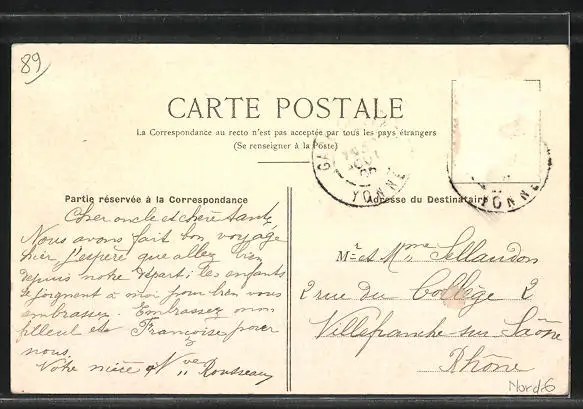 89
CARTE POSTALE
La Correspondance au recto n'est pas acceptée par tous les pays étrangers
(Se renseigner à la Poste)
YONNE
YONNE
Partie réservée à la Correspondance
Adresse du Destinataire
Cher oncle et chère tante
Nous avons fait bon voyage
hier j'espère que allez bien
depuis notre départ; les enfants
se joignent à moi pour bien vous
embrasser. Embrassez mon
filleul et Françoise pour
nous.
Votre nièce Vve Rousseau
Mr et Mme Sellandon
2 rue du Collège 2
Villefranche-sur Saône
Rhône
Nord-6